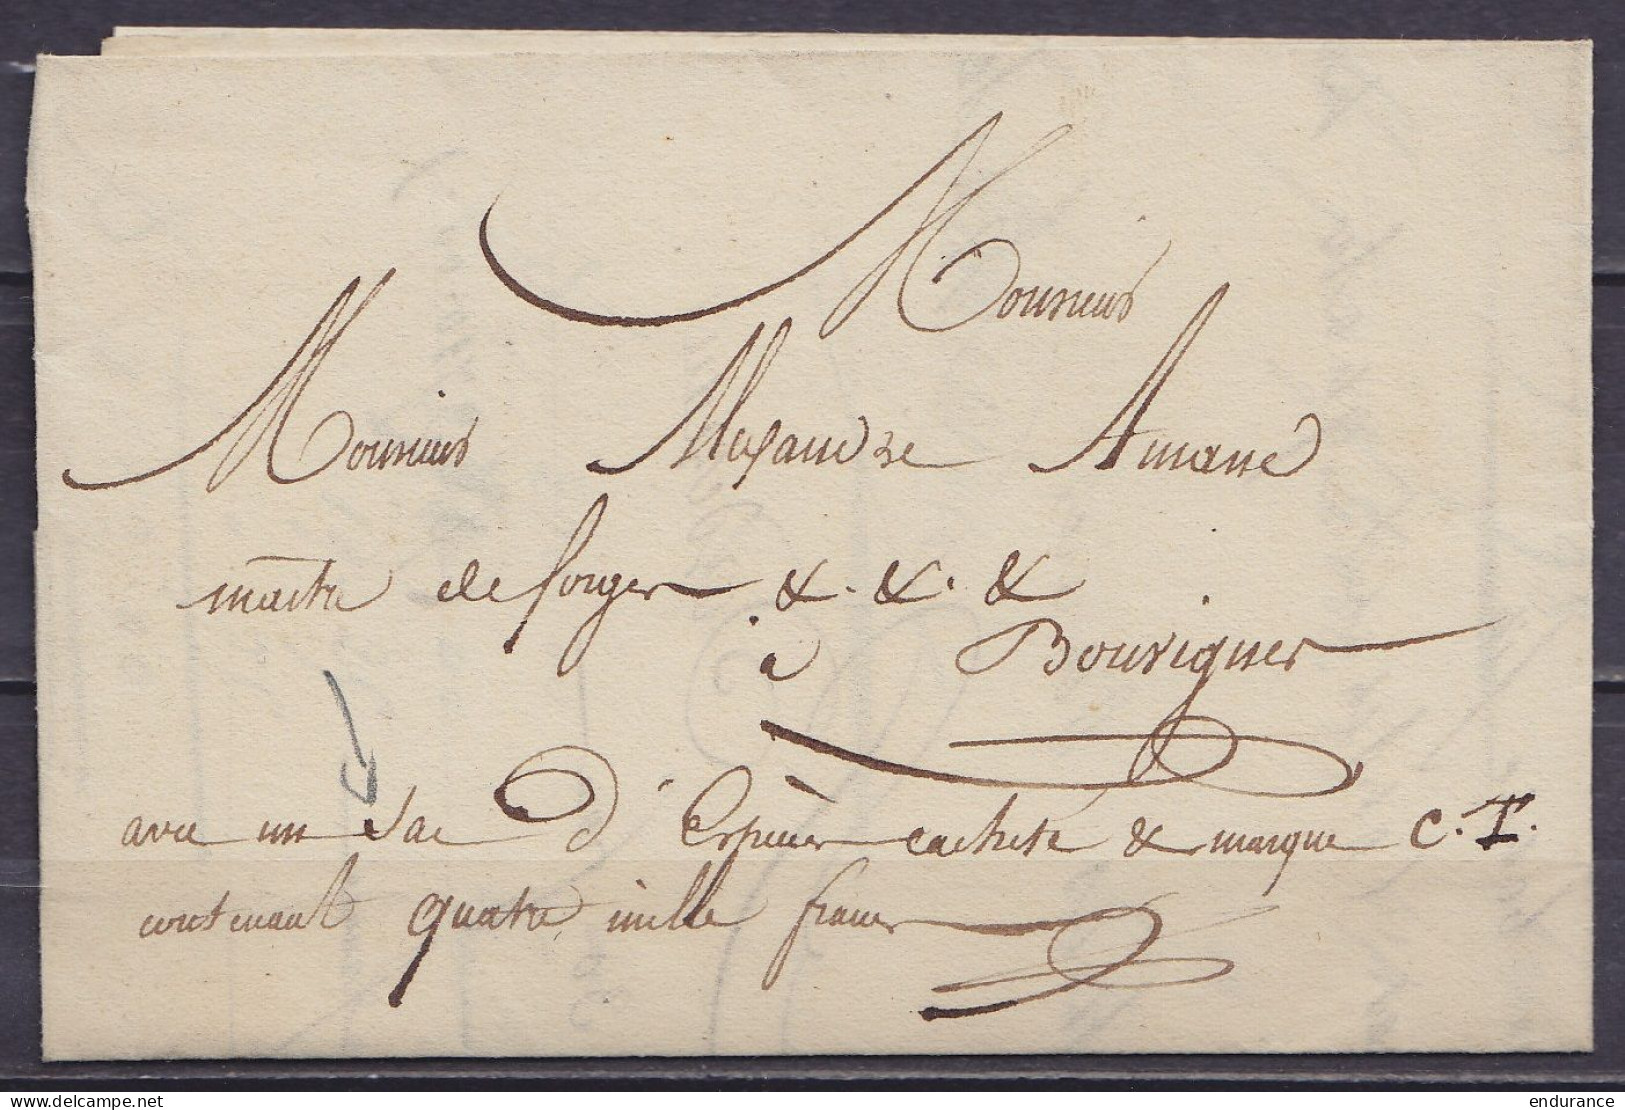 Monsieur
Monsieur Alexandre Amand
maitre de forges & . & . &
à Bouvignes
avec un sac d'Especes cacheté & marque C. T.
contenant quatre mille francs
delcampe.net
endurance